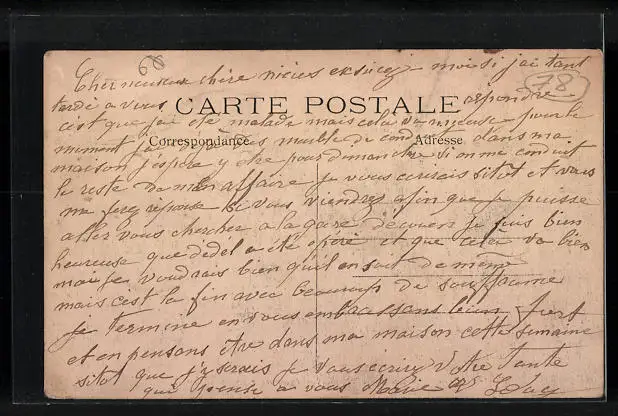 68
Cher neveux chère nièces excusez moi si j'ai tant
78
tardé a vous répondre
CARTE POSTALE
c'est que j'ai été malade mais cela va mieux pour le
Correspondance
Adresse
moment j'ai des meuble de conduit dans ma
maison j'espère y être pour dimanche si on me conduit
le reste de mon affaire je vous écrirais sitot et vous
me ferez réponse si vous viendres afin que je puisse
aller vous chercher a la gare d'écouen je suis bien
heureuse que dédel a été opéré et que cela va bien
moi je voudrais bien qu'il en soit de même
mais c'est la fin avec beaucoup de souffrance
je termine en vous embrassans bien fort
et en pensans être dans ma maison cette semaine
sitot que j'y serais je vous écrirez Votre tante
qui pense a vous Marie